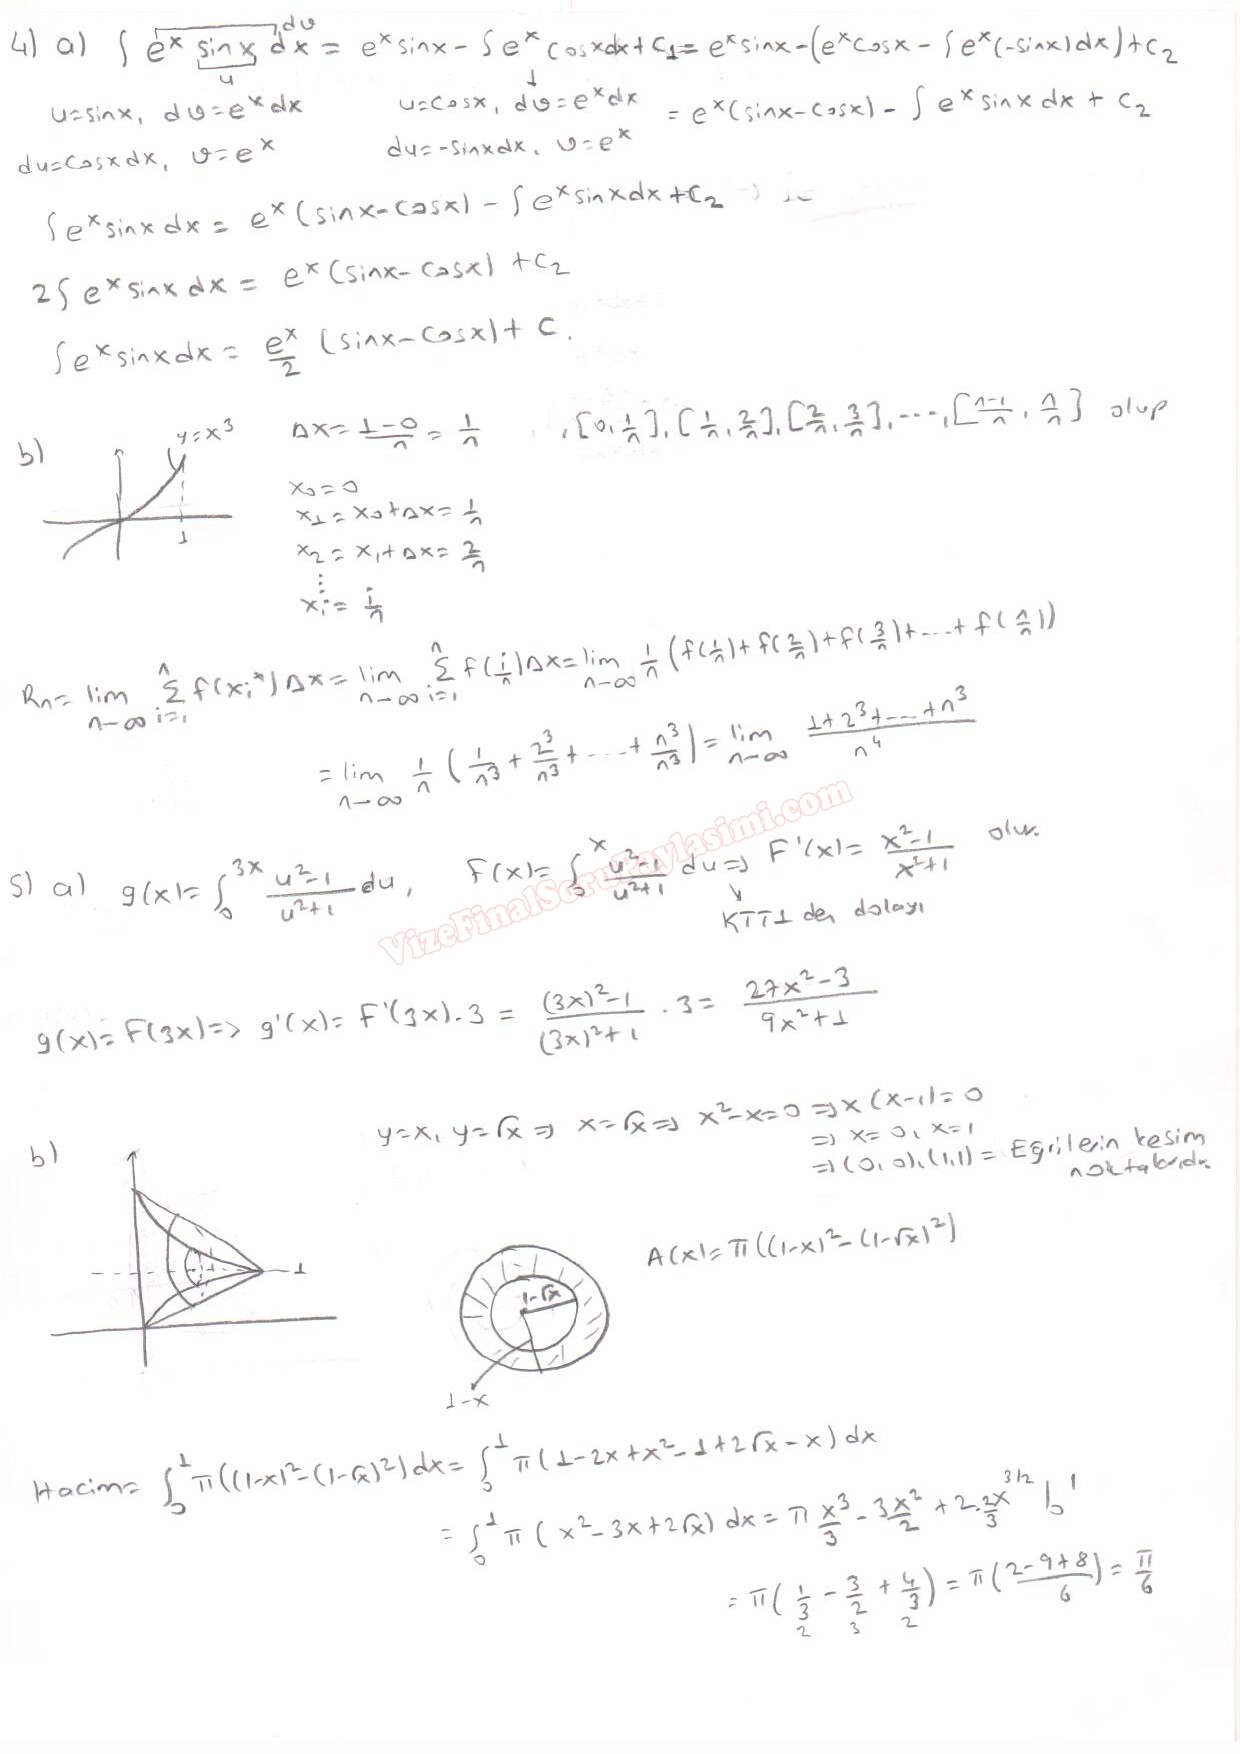 4) a) ∫ e^x sinx dx = e^x sinx - ∫ e^x cosx dx + C₁ = e^x sinx - (e^x cosx - ∫ e^x (-sinx) dx) + C₂
dv
u
u=sinx, dv=e^x dx    u=cosx, dv=e^x dx    = e^x (sinx-cosx) - ∫ e^x sinx dx + C₂
du=cosx dx, v=e^x    du=-sinx dx, v=e^x
∫ e^x sinx dx = e^x (sinx-cosx) - ∫ e^x sinx dx + C₂
2∫ e^x sinx dx = e^x (sinx-cosx) + C₂
∫ e^x sinx dx = e^x/2 (sinx-cosx) + C.
b) y=x³    Δx = (1-0)/n = 1/n    , [0, 1/n], [1/n, 2/n], [2/n, 3/n], ..., [(n-1)/n, n/n] olup
1
x₀=0
x₁ = x₀+Δx = 1/n
x₂ = x₁+Δx = 2/n
⋮
xᵢ = i/n
Rn = lim n→∞ Σ i=1 n f(xᵢ*) Δx = lim n→∞ Σ i=1 n f(i/n) Δx = lim n→∞ 1/n (f(1/n)+f(2/n)+f(3/n)+...+f(n/n))
= lim n→∞ 1/n (1/n³ + 2³/n³ + ... + n³/n³) = lim n→∞ (1+2³+...+n³)/n⁴
5) a) g(x) = ∫₀^3x (u²-1)/(u²+1) du,    F(x) = ∫₀^x (u²-1)/(u²+1) du ⇒ F'(x) = (x²-1)/(x²+1) olur.
KTT1 den dolayı
g(x) = F(3x) ⇒ g'(x) = F'(3x).3 = ((3x)²-1)/((3x)²+1) . 3 = (27x²-3)/(9x²+1)
b) y=x, y=√x ⇒ x=√x ⇒ x²-x=0 ⇒ x(x-1)=0
⇒ x=0, x=1
⇒ (0,0), (1,1) = Eğrilerin kesim
noktalarıdır.
1
A(x) = π((1-x)² - (1-√x)²)
1-√x
1-x
Hacim = ∫₀¹ π((1-x)² - (1-√x)²) dx = ∫₀¹ π(1-2x+x²-1+2√x-x) dx
= ∫₀¹ π (x²-3x+2√x) dx = π x³/3 - 3x²/2 + 2.2x^3/2/3 |₀¹
= π(1/3 - 3/2 + 4/3) = π((2-9+8)/6) = π/6
2 3 2
VizeFinalSoruPaylasimi.com